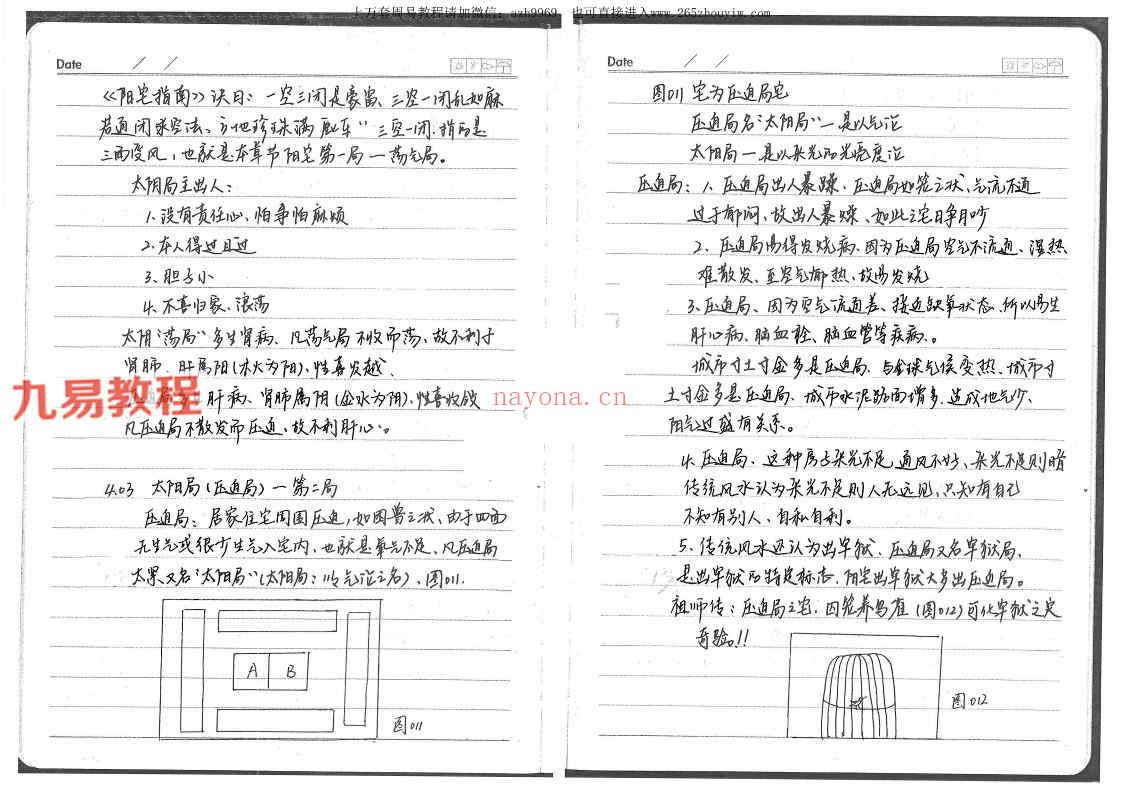 上万套周易教程请加微信：azh9969 也可直接进入www.265zhouyim.com
Date / /
《阳宅指南》诀曰：一空三闭是豪富、三空一闭乱如麻
若通闭求空法、立地珍珠满 车" 三空一闭.指的是
三面受风，也就是本章节阳宅第一局一荡气局。
太阴局主出人：
1.没有责任心、怕争怕麻烦
2.本人得过且过
3.胆子小
4.不喜归家、浪荡
太阴"荡局"多生肾病、凡荡气局不收而荡、故不利于
肾肺.肝属阳(木火为阳)、性喜发越、
肝病、肾肺属阴(金水为阴).性喜收敛
凡压迫局不散发而压迫、故不利肝心。
4.03 太阳局(压迫局)一第二局
压迫局：居家住宅周围压迫，如困兽之状、由于四面
无生气或很少生气入宅内、也就是氧气不足、凡压迫局
太 又名"太阳局"(太阳局：以气论之名)、图011.
A B
图011
Date / /
图011宅为压迫局宅
压迫局名"太阴局"一是以气论
太阳局一是以采光的光亮度论
压迫局：1、压迫局出人暴躁、压迫局如笼之状、气流不通
过于郁闷、故出人暴燥、如此之宅日争月吵
2、压迫局易得发烧病、因为压迫局空气不流通、湿热
难散发、至空气郁热、故易发烧
3、压迫局、因为空气流通差、接近缺氧状态、所以易生
肝心病、脑血栓、脑血管等疾病、。
城市寸土寸金多是压迫局、与全球气候变热、城市寸
土寸金多是压迫局、城市水泥路面增多、造成地气少、
阳气过盛有关系。
4、压迫局、这种房子采光不足、通风不好、采光不足则暗
传统风水认为采光不足则人无远见、只知有自己
不知有别人、自私自利。
5、传统风水还认为出牢狱、压迫局又名牢狱局、
是出牢狱的特定标志、阳宅出牢狱大多出压迫局。
祖师传：压迫局之宅、因笼养鸟雀(图012)可化牢狱之灾
奇验。!!
图012
九易教程
nayona.cn